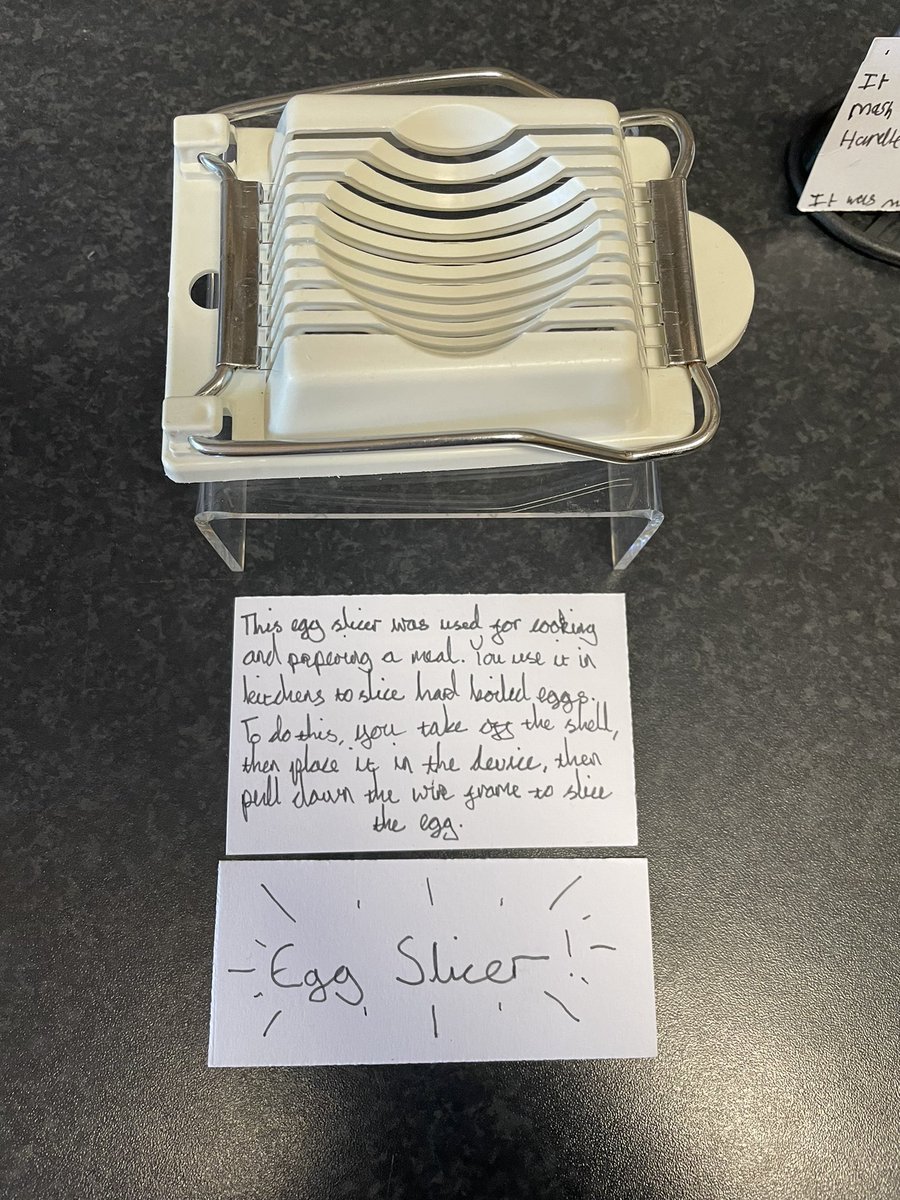 This egg slicer was used for cooking
and prepering a meal. You use it in
kitchens to slice hard boiled eggs.
To do this, you take off the shell,
then place it in the device, then
pull down the wire frame to slice
the egg.
Egg Slicer!
It
Mash
Handle
It was